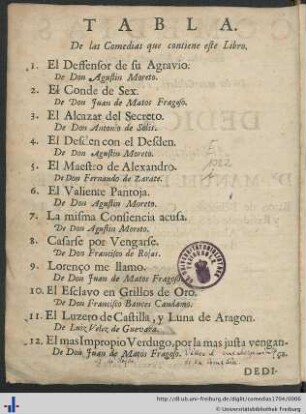 TABLA.
De las Comedias que contiene este Libro.
1. El Deffensor de su Agravio.
De Don Agustin Moreto.
2. El Conde de Sex.
De Don Juan de Matos Fragoso.
3. El Alcazar del Secreto.
De Don Antonio de Solis.
4. El Desden con el Desden.
De Don Agustin Moreto.
5. El Maestro de Alexandro.
De Don Fernando de Zarate.
6. El Valiente Pantoja.
De Don Agustin Moreto.
7. La misma Consiencia acusa.
De Don Agustin Moreto.
8. Casarse por Vengarse.
De Don Francisco de Rojas.
9. Lorenço me llamo.
De Don Juan de Matos Fragoso.
10. El Esclavo en Grillos de Oro.
De Don Francisco Bances Candamo.
11. El Luzero de Castilla, y Luna de Aragon.
De Luis Velez de Guevara.
12. El mas Impropio Verdugo, por la mas justa vengan-
De Don Juan de Matos Fragoso. ça.
DEDI-
http://dl.ub.uni-freiburg.de/diglit/comedias1704/0006
© Universitätsbibliothek Freiburg